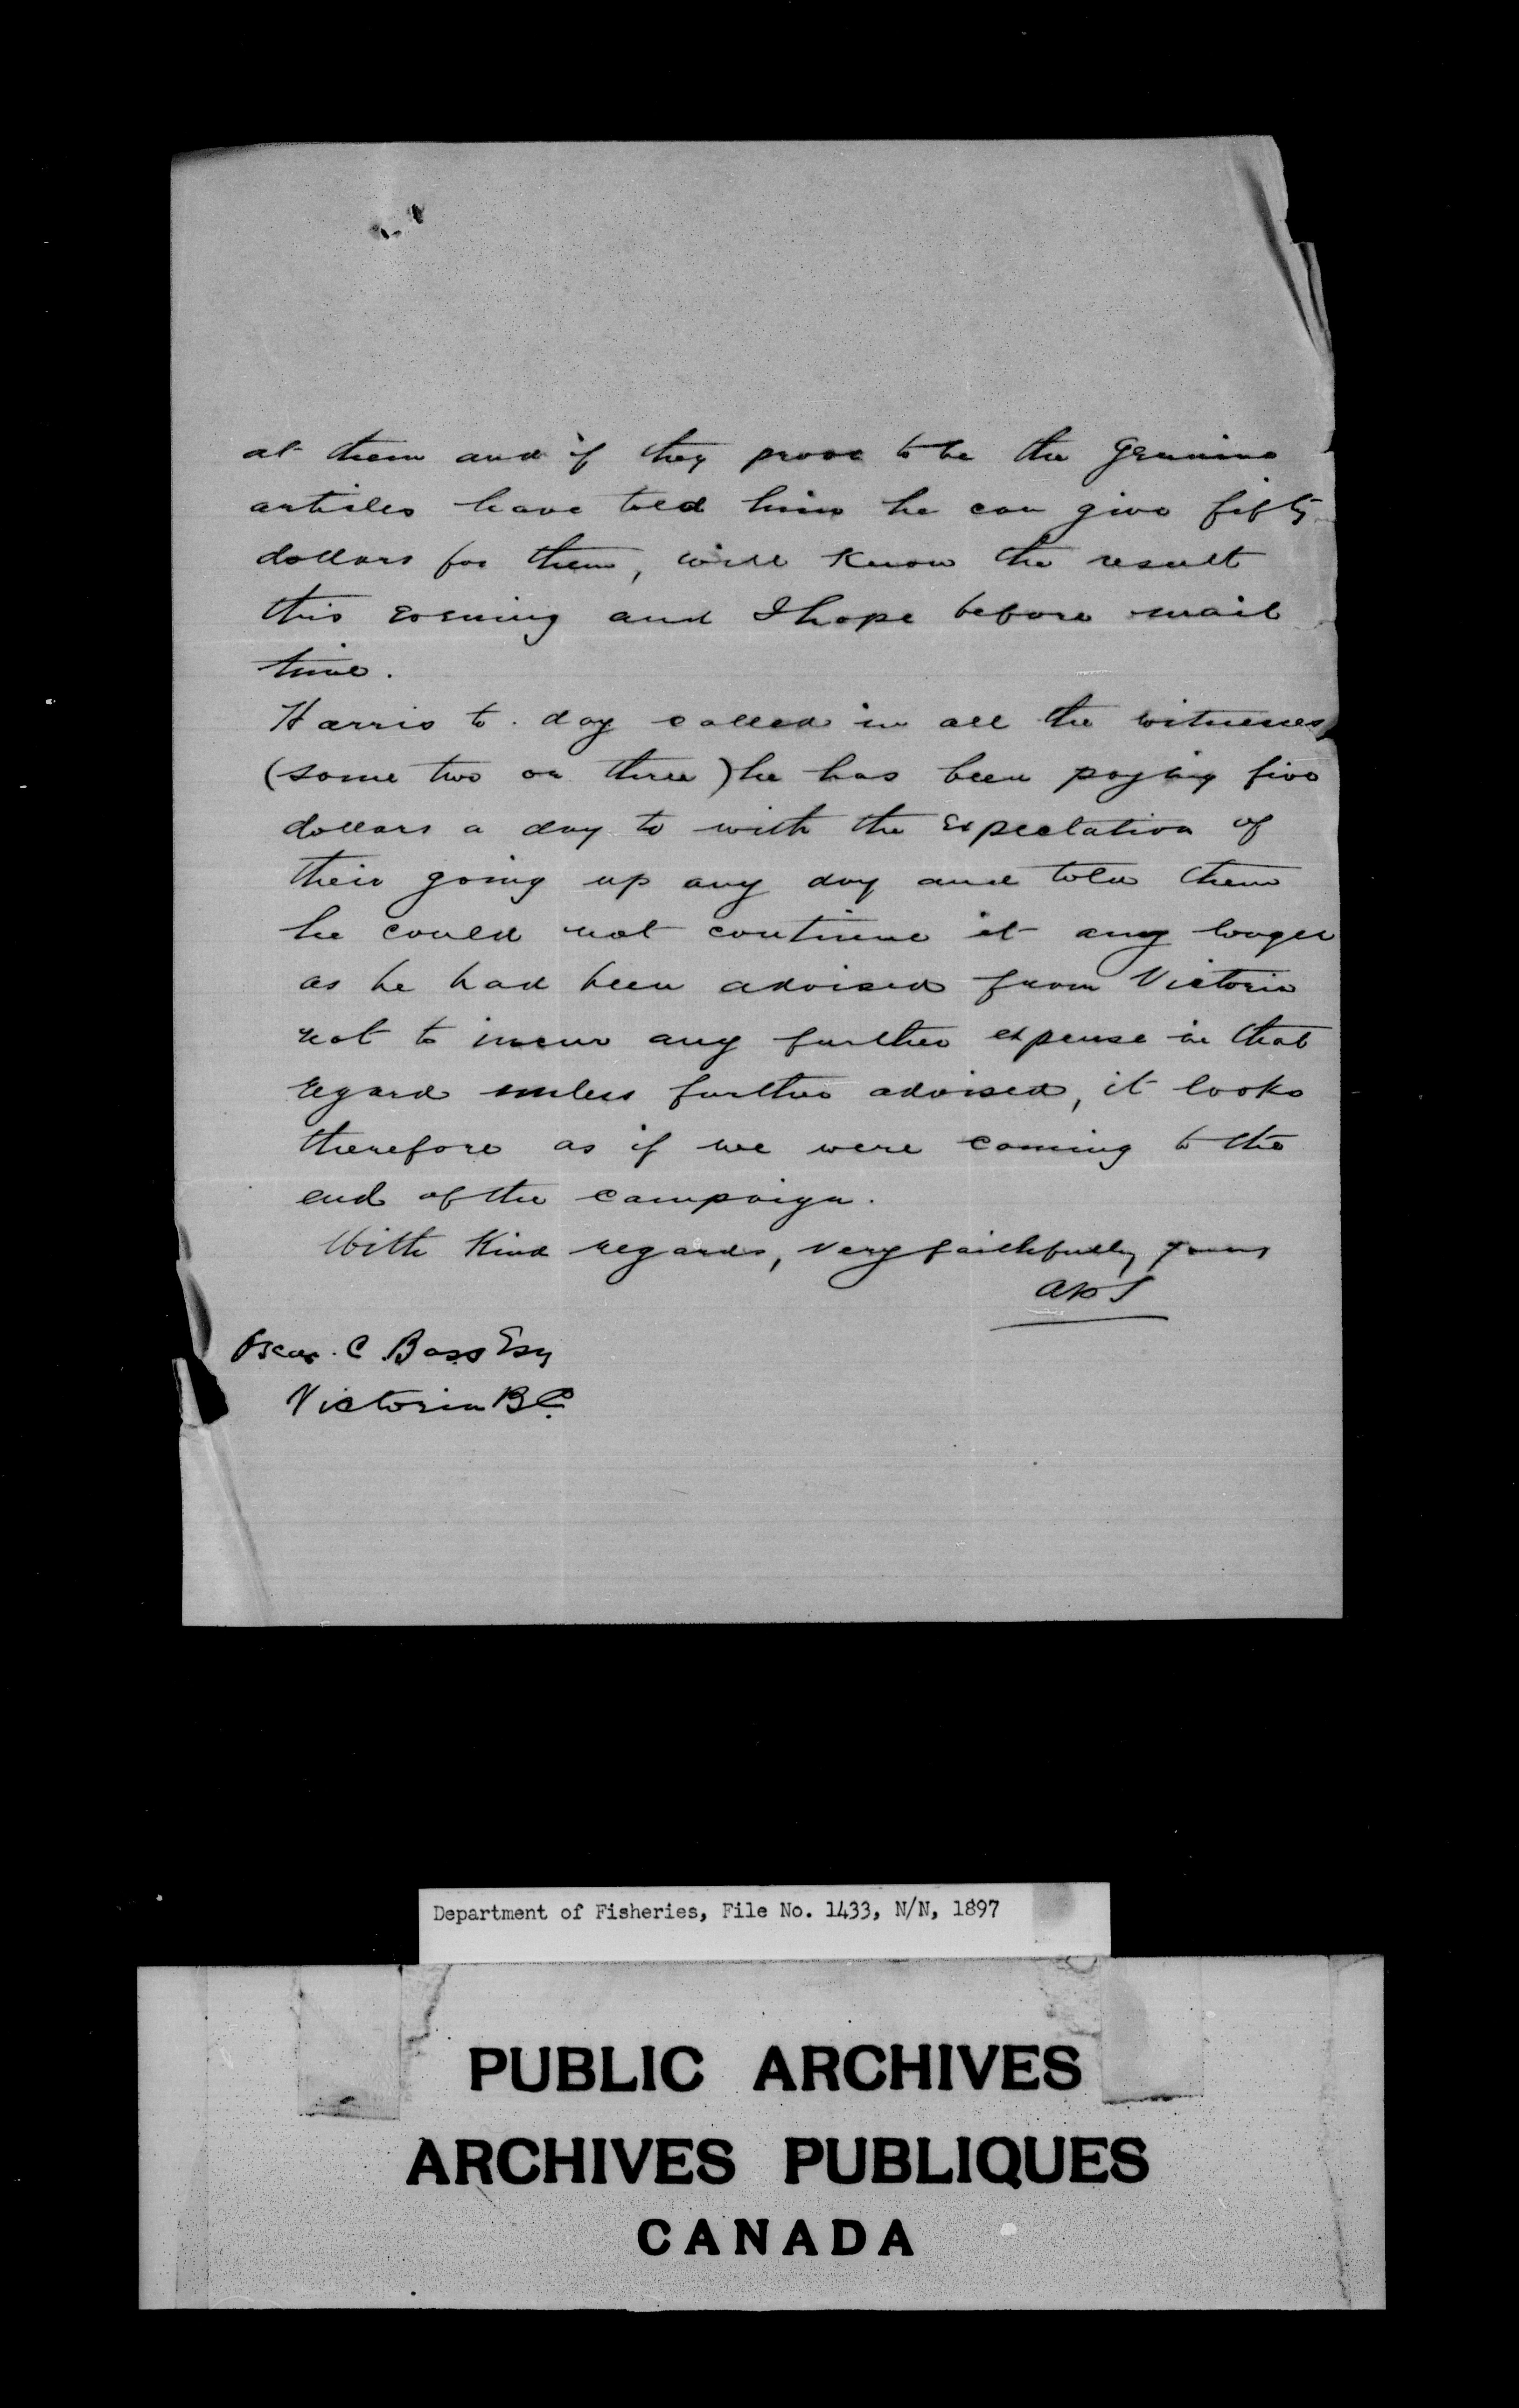 at them and if they prove to be the Genuine
articles have told him he can give fifty
dollars for them, will Know the result
this evening and I hope before mail
time.
Harris to. day called in all the witnesses
(some two or three) he has been paying five
dollars a day to with the expectation of
their going up any day and told them
he could not continue it any longer
as he had been advised from Victoria
not to incur any further expense in that
regard unless further advised, it looks
therefore as if we were coming to the
end of the campaign.
With Kind regards, very faithfully yours
Oscar. C Bass Esq
Victoria B C.
Department of Fisheries, File No. 1433, N/N, 1897
PUBLIC ARCHIVES
ARCHIVES PUBLIQUES
CANADA